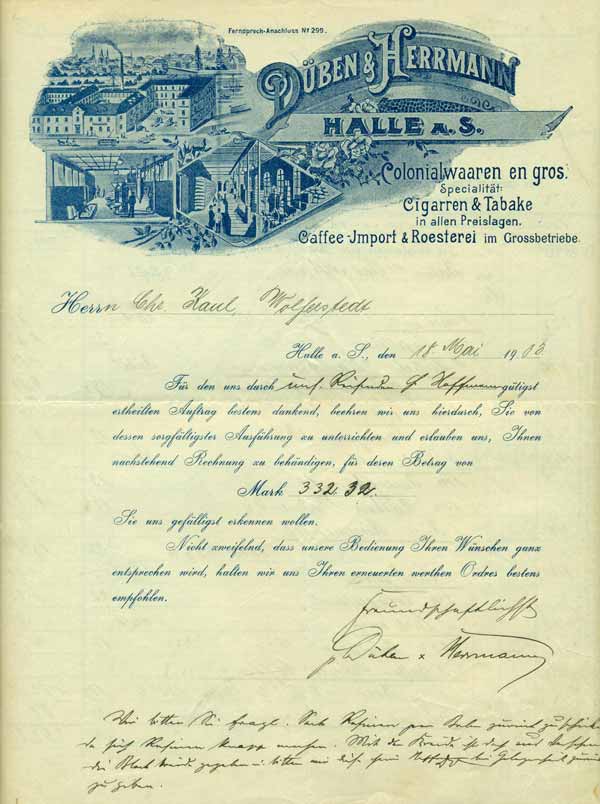 Ferndsprech-Anschluss No 299.
DÜBEN & HERRMANN
HALLE A. S.
Colonialwaaren en gros.
Specialität:
Cigarren & Tabake
in allen Preislagen.
Caffee-Jmport & Roesterei im Grossbetriebe.
Herrn Chr. Kaul, Wolferstedt
Halle a. S., den 18 Mai 1903.
Für den uns durch uns. Reisenden H Hoffmann gütigst
ertheilten Auftrag bestens dankend, beehren wir uns hierdurch, Sie von
dessen sorgfältigster Ausführung zu unterrichten und erlauben uns, Ihnen
nachstehend Rechnung zu behändigen, für deren Betrag von
Mark 332.32.
Sie uns gefälligst erkennen wollen.
Nicht zweifelnd, dass unsere Bedienung Ihren Wünschen ganz
entsprechen wird, halten wir uns Ihren erneuerten werthen Ordres bestens
empfohlen.
Freundschaftlichst
Düben & Herrmann
Wir bitten Sie fragl. Sack Rosinen per Bahn zurück zu schicken
da sich Rosinen knapp machen. Mit der Kreide ist
die
zu geben.